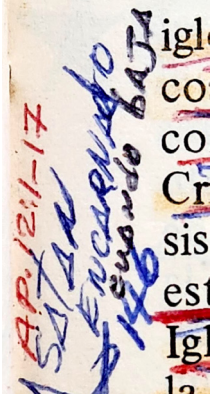 AP. 12:1-17
SATAN
ENCARNADO
cuando BAJA
igl
co
co
Cr
sis
est
Igl
la